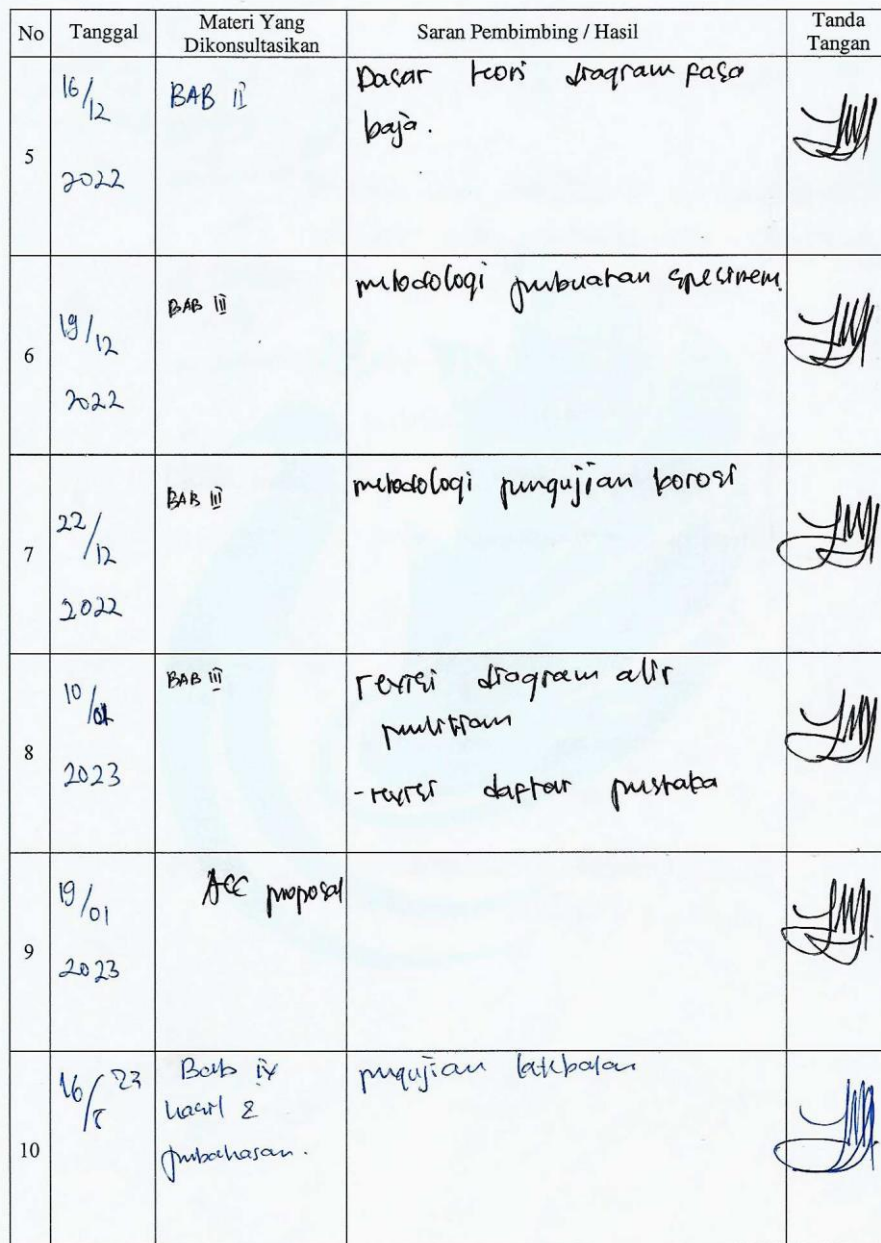 No Tanggal Materi Yang Dikonsultasikan Saran Pembimbing / Hasil Tanda Tangan
5 16/12 2022 BAB II Dasar teori diagram fasa
baja.
6 19/12 2022 BAB III metodologi pembuatan specimen
7 22/12 2022 BAB III metodologi pengujian korosi
8 10/01 2023 BAB III revisi diagram alir
penelitian
- revisi daftar pustaka
9 19/01 2023 ACC proposal
10 16/ 23 Bab IV pengujian
hasil &
pembahasan.